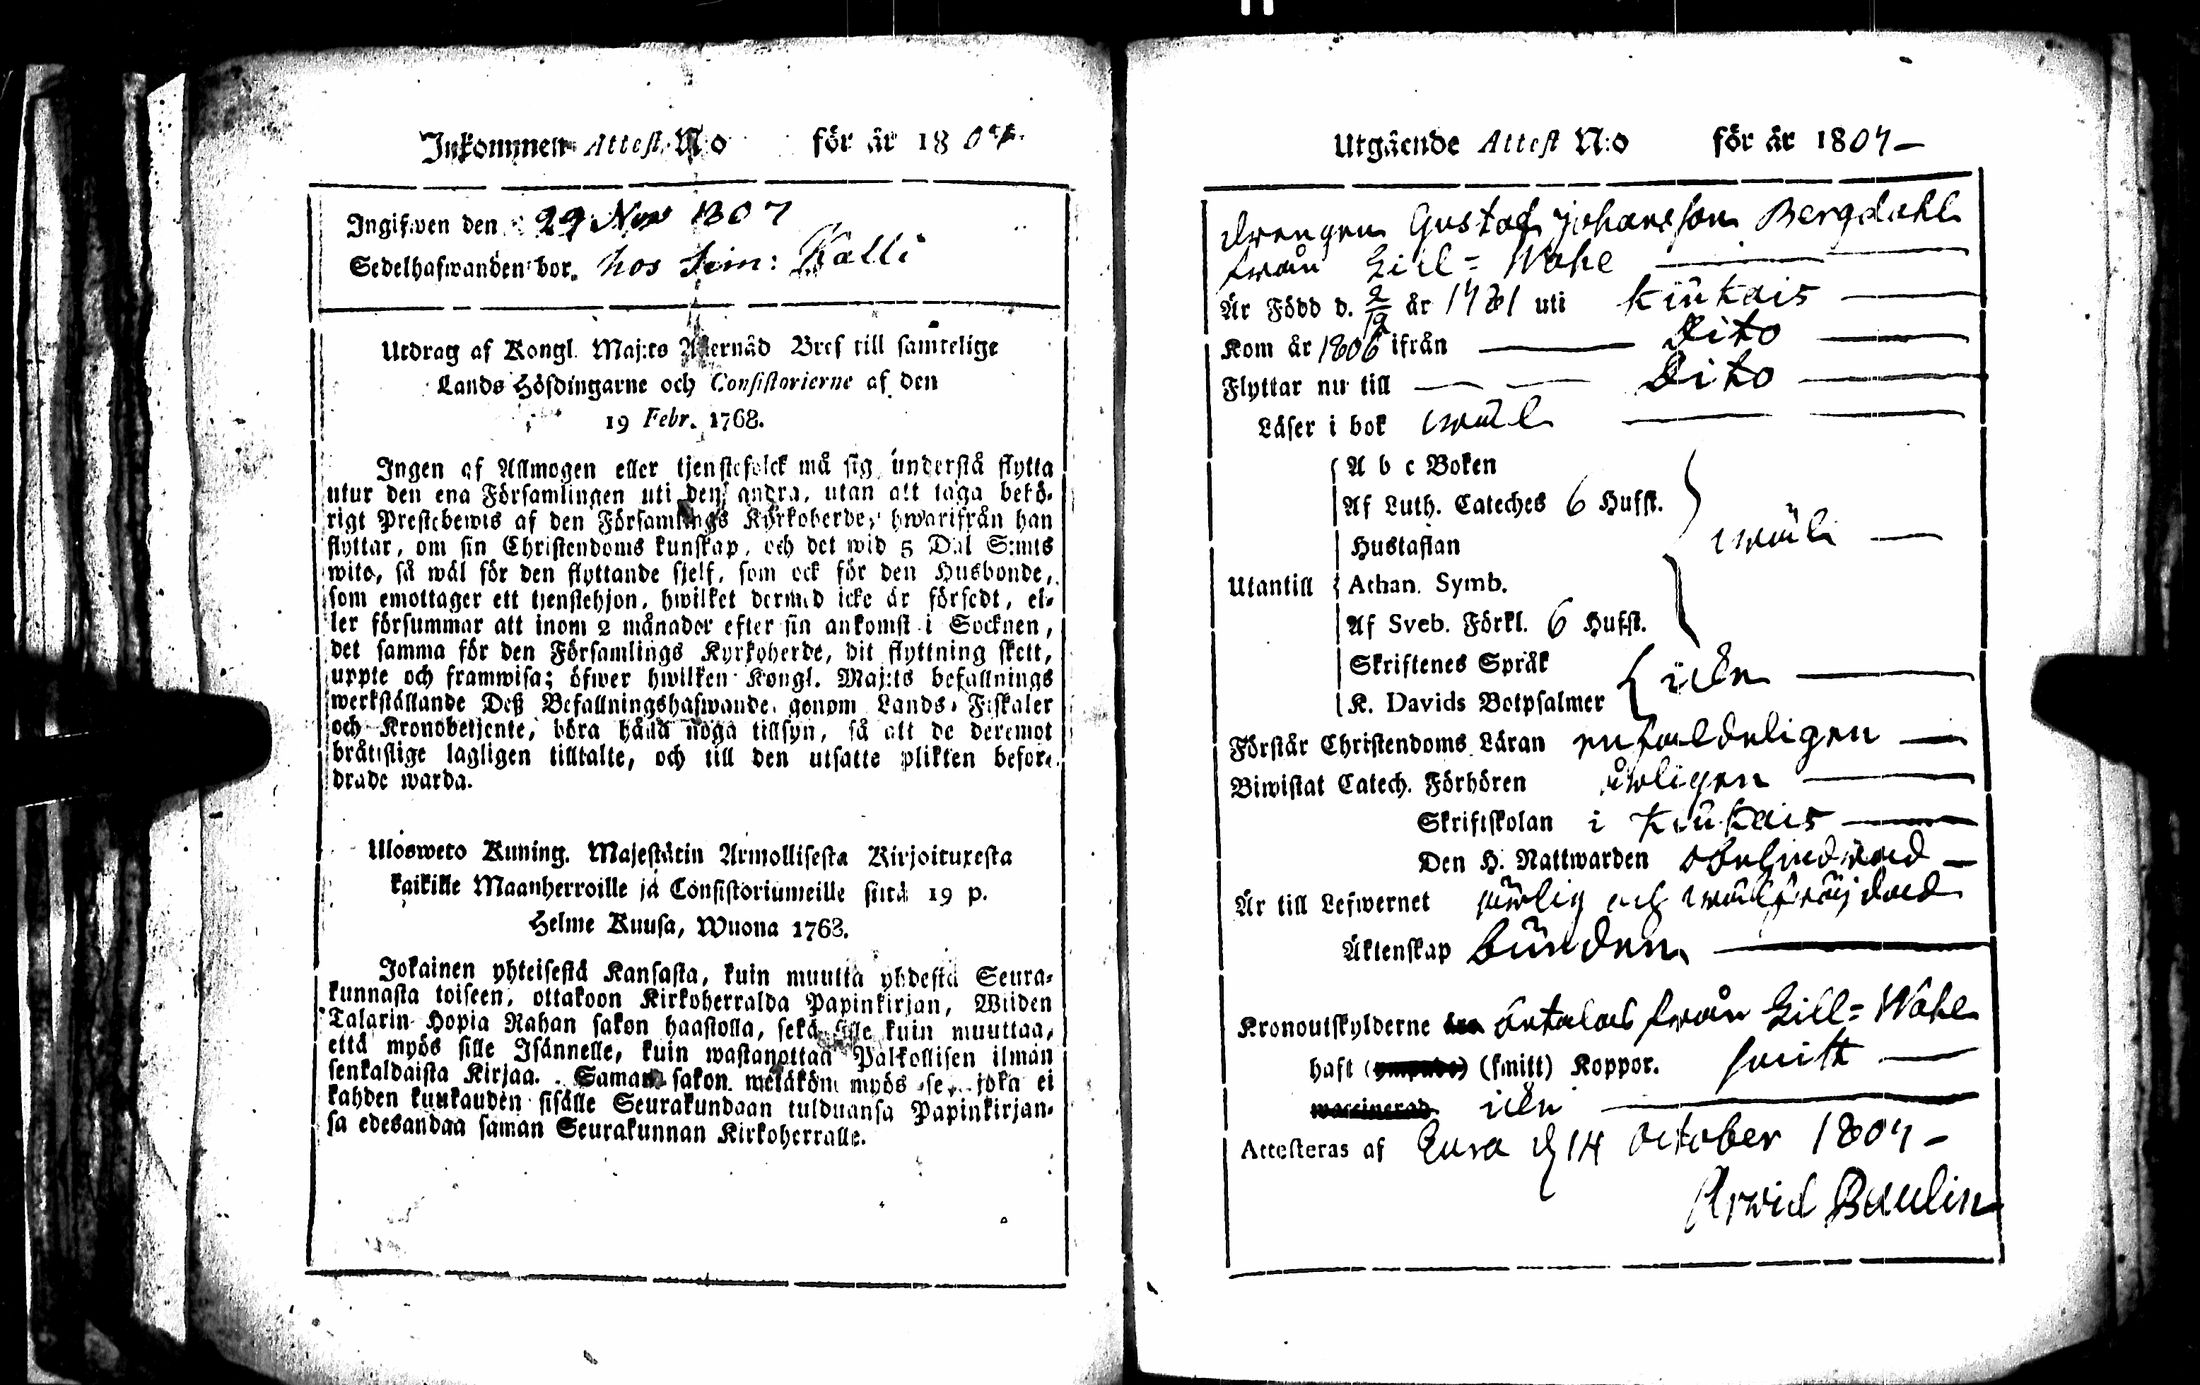 Inkommen Attest N:o för år 1807.
Ingifwen den 29 Nov 1807
Sedelhafwanden bor. hos Sim: Kalli
Utdrag af Kongl. Maj:ts Allernåd Bref till samtelige
Lands Höfdingarne och Consistorierne af den
19 Febr. 1768.
Ingen af Allmogen eller tjenstefolck må sig understå flytta
utur den ena Församlingen uti den andra, utan att taga behö-
rigt Prestebewis af den Församlings Kyrkoherde, hwarifrån han
flyttar, om sin Christendoms kunskap, och det wid 5 Dal S:mts
wite, så wäl för den flyttande sjelf, som ock för den Husbonde,
som emottager ett tjenstehjon, hwilket dermed icke är försedt, el-
ler försummar att inom 2 månader efter sin ankomst i Socknen,
det samma för den Församlings Kyrkoherde, dit flyttning skett,
uppte och framwisa; öfwer hwilken Kongl. Maj:ts befallnings
werkställande Deß Befallningshafwande, genom Lands-Fiskaler
och Kronobetjente, böra hålla noga tillsyn, så att de deremot
bråtislige lagligen tilltalte, och till den utsatte plikten befor-
drade warda.
Ulosweto Kuning. Majestätin Armollisesta Kirjoituxesta
kaikille Maanherroille ja Consistoriumeille siitä 19 p.
Helme Kuusa, Wuona 1768.
Jokainen yhteisestä Kansasta, kuin muutta yhdestä Seura-
kunnasta toiseen, ottakoon Kirkoherralda Papinkirjan, Wiiden
Talarin Hopia Rahan sakon haastolla, sekä sille kuin muuttaa,
että myös sille Isännelle, kuin wastanottaa Palkollisen ilman
senkaldaista Kirjaa. Saman sakon wetäköm myös se, joka ei
kahden kuukauden sisälle Seurakundaan tulduansa Papinkirjan-
sa edesandaa saman Seurakunnan Kirkoherralle.
Utgående Attest N:o för år 1807
drengen Gustaf Johansson Bergdahl
från Lill=Wahe
Är Född d. 2/19 år 1781 uti Kiukais
Kom år 1806 ifrån Dito
Flyttar nu till Dito
Läser i bok wäl
A b c Boken
Af Luth. Cateches 6 Hufst.
Hustaflan wäl
Utantill Athan. Symb.
Af Sveb. Förkl. 6 Hufst.
Skriftenes Språk
K. Davids Botpsalmer icke
Förstår Christendoms Läran enfaldeligen
Biwistat Catech. Förhören årligen
Skriftskolan i Kiukais
Den H. Nattwarden obehindrad
Är till Lefwernet ärlig och wälfräjdad
Äktenskap bunden
Kronoutskylderne betalas från Lill=Wahe
haft (smitt) Koppor. smitt
waccinerad icke
Attesteras af Eura d 14 October 1807
Arwid Paulin